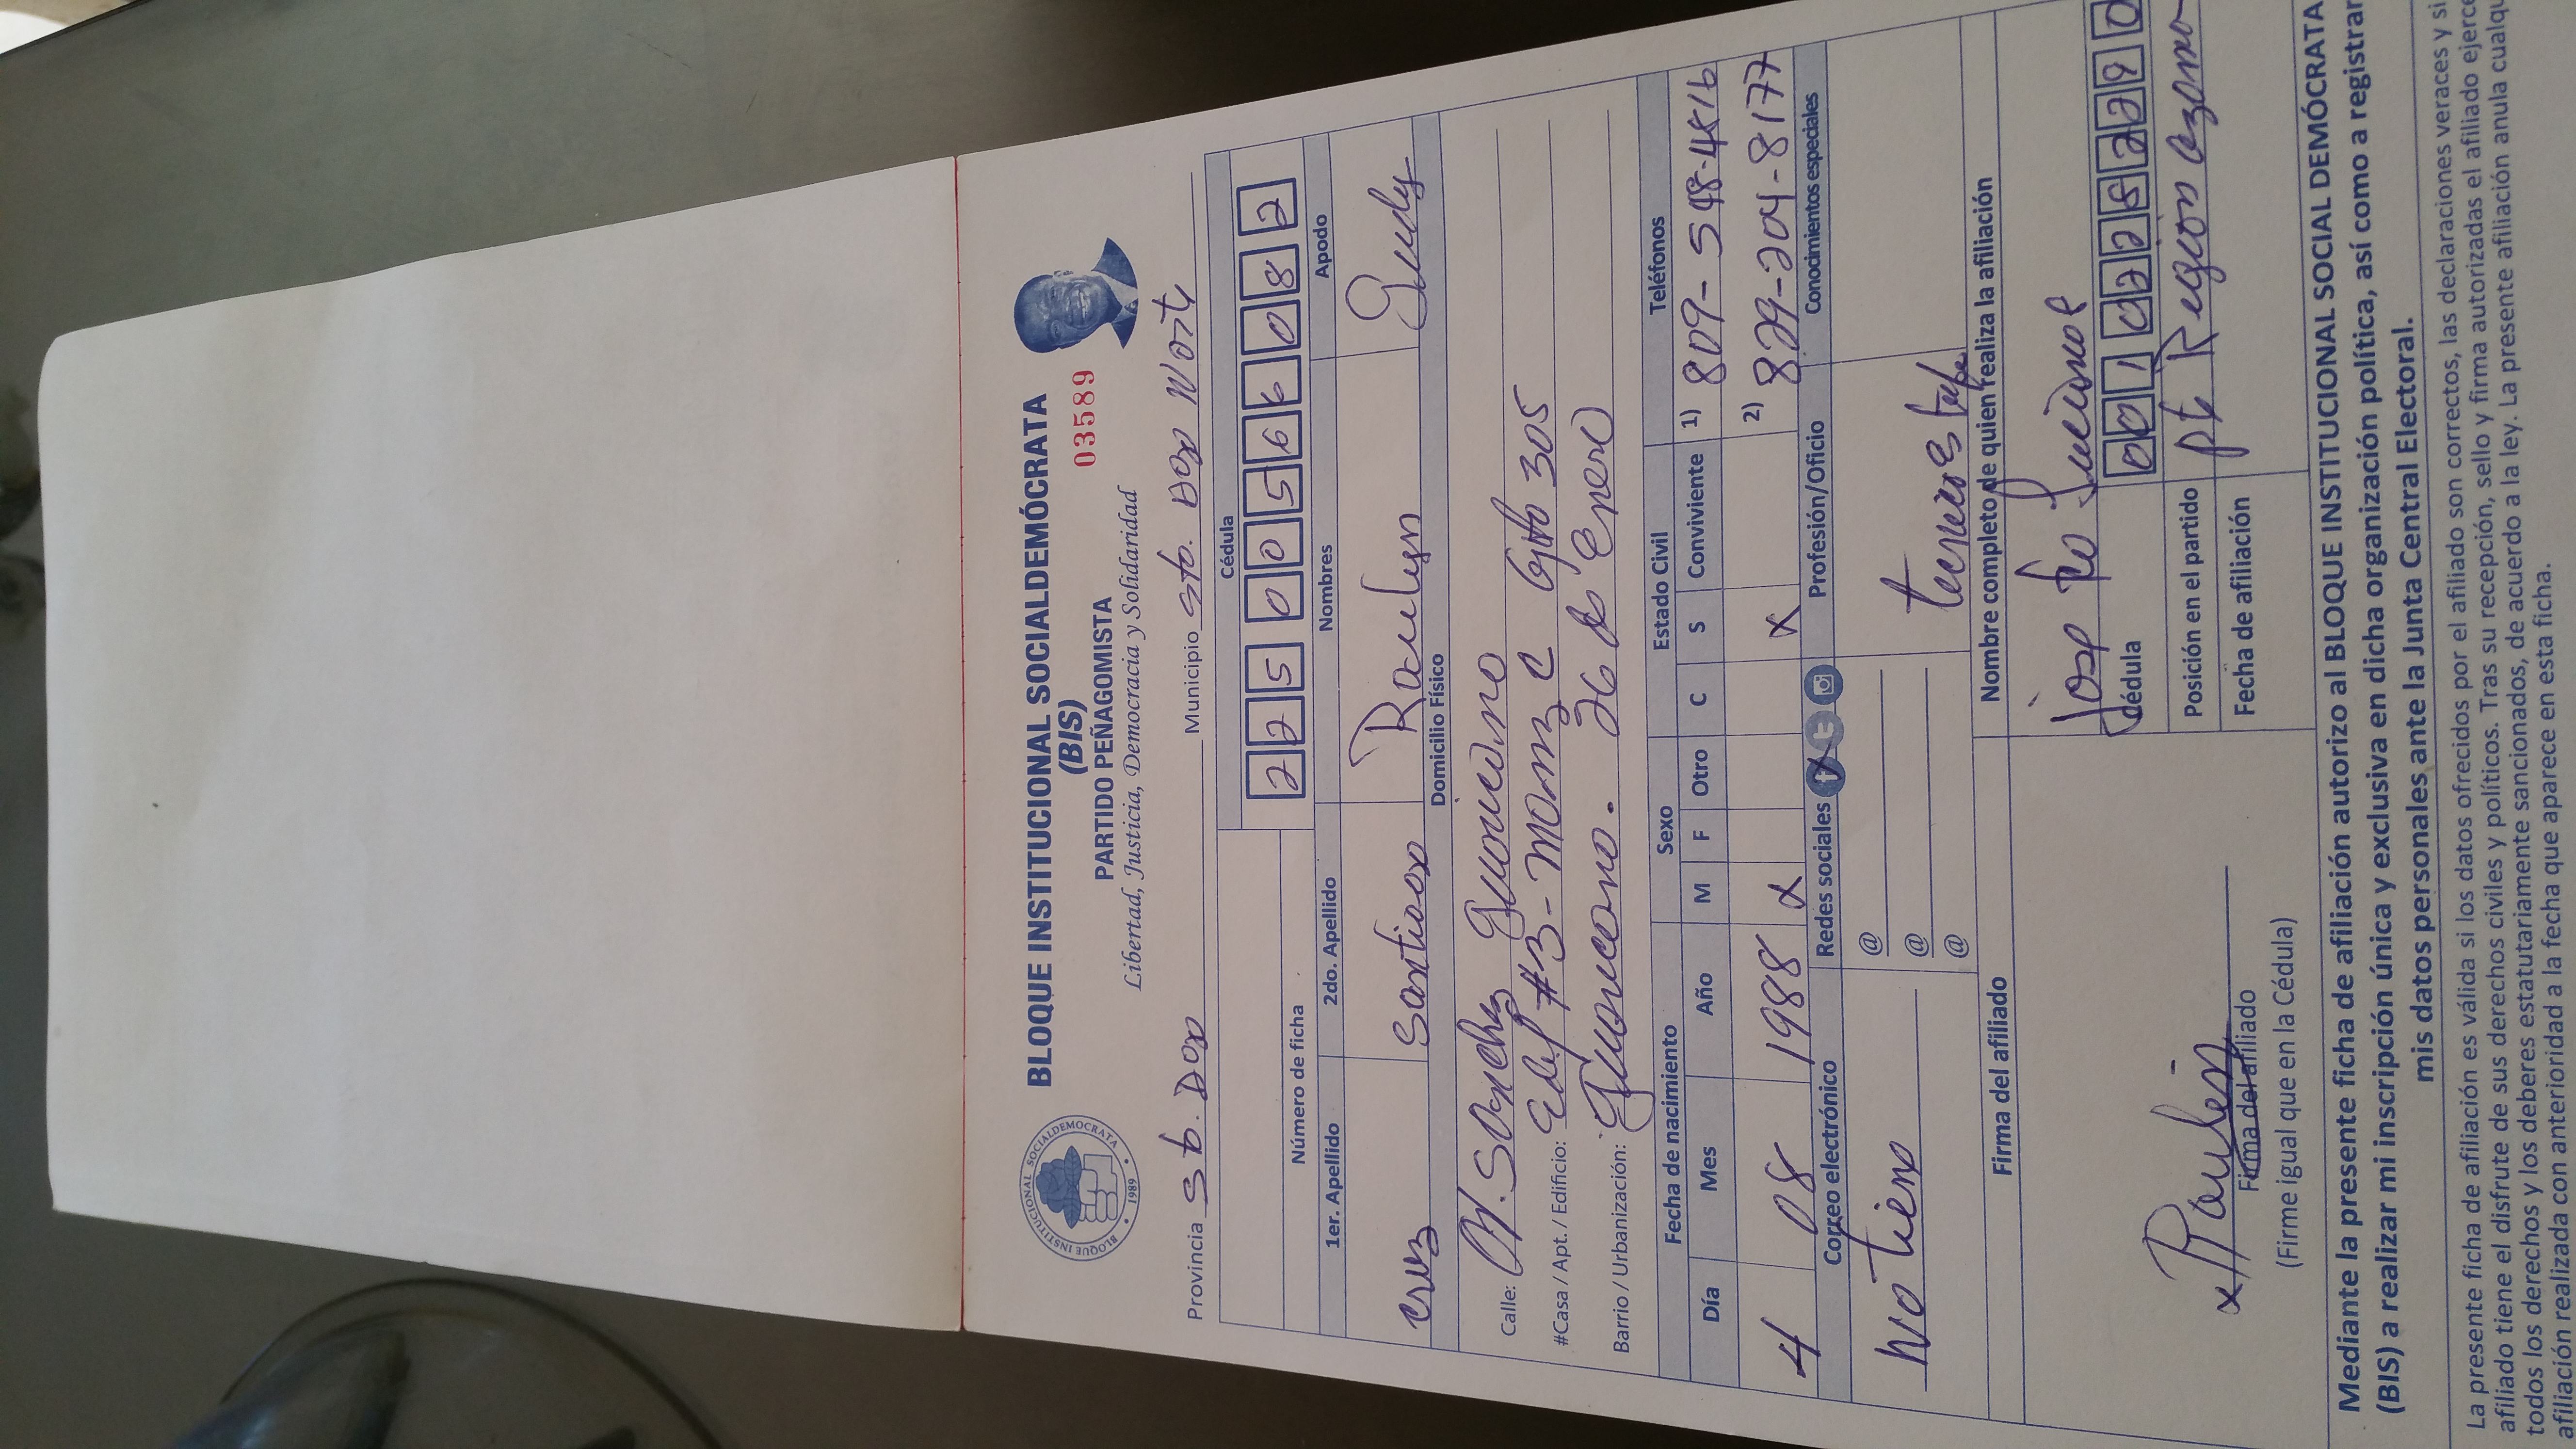 BLOQUE INSTITUCIONAL SOCIALDEMÓCRATA
(BIS)
PARTIDO PEÑAGOMISTA
03589
Libertad, Justicia, Democracia y Solidaridad
BLOQUE INSTITUCIONAL SOCIALDEMOCRATA
1989
Provincia Sto. Dgo Municipio Sto. Dgo Norte
Cédula
2 2 5 0 0 5 6 6 0 8 2
Número de ficha
1er. Apellido 2do. Apellido Nombres Apodo
Cruz Santiago Raulyn
Domicilio Físico
Calle: M. Sanchez Guaricano
#Casa / Apt. / Edificio: Edif #3 - Manz C Apto 305
Barrio / Urbanización: Guaricano. 26 de Enero
Fecha de nacimiento Sexo Estado Civil Teléfonos
Día Mes Año M F Otro C S Conviviente 1) 809-548-4816
4 08 1988 X X 2) 829-204-8177
Correo electrónico Redes sociales Profesión/Oficio Conocimientos especiales
No tiene
@
@
@
Firma del afiliado Nombre completo de quien realiza la afiliación
Cédula 0 0 1 0 2 5 2 2 9 0
Posición en el partido
Fecha de afiliación
x Raulin
Firma del afiliado
(Firme igual que en la Cédula)
Mediante la presente ficha de afiliación autorizo al BLOQUE INSTITUCIONAL SOCIAL DEMÓCRATA
(BIS) a realizar mi inscripción única y exclusiva en dicha organización política, así como a registrar
mis datos personales ante la Junta Central Electoral.
La presente ficha de afiliación es válida si los datos ofrecidos por el afiliado son correctos, las declaraciones veraces y si
afiliado tiene el disfrute de sus derechos civiles y políticos. Tras su recepción, sello y firma autorizadas el afiliado ejerce
todos los derechos y los deberes estatutariamente sancionados, de acuerdo a la ley. La presente afiliación anula cualqu
afiliación realizada con anterioridad a la fecha que aparece en esta ficha.